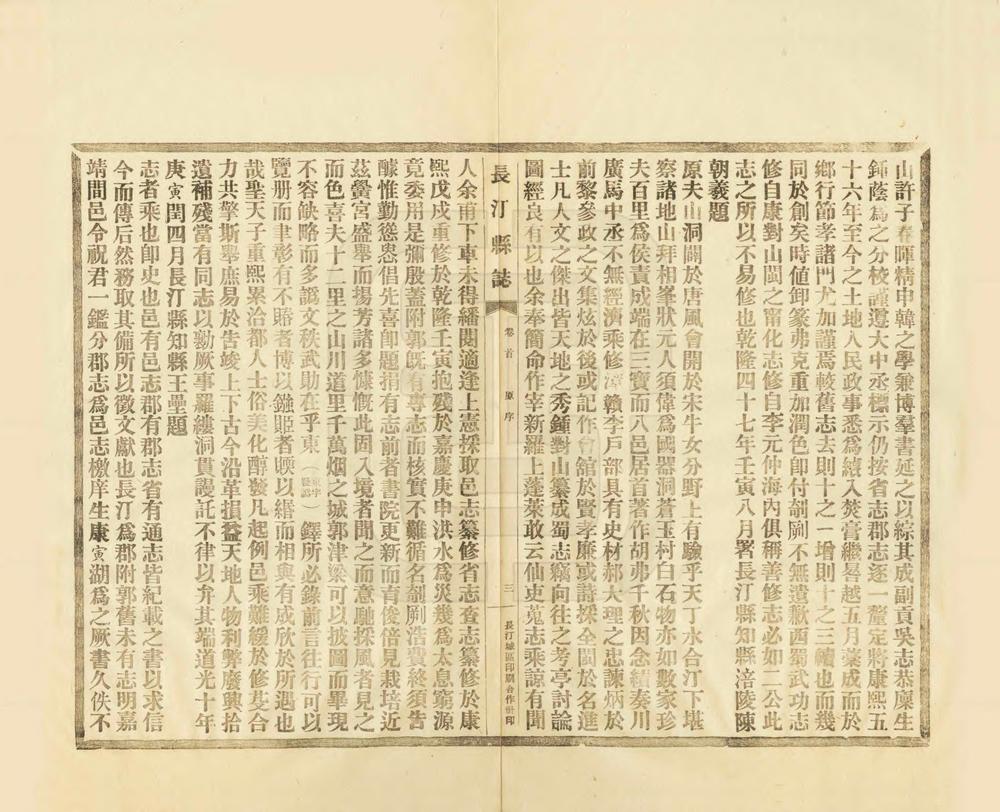 山許子春暉精申韓之學兼博羣書延之以綜其成副貢吳志恭廩生
鍾蔭為之分校謹遵大中丞標示仍按省志郡志逐一釐定將康熙五
十六年至今之土地人民政事悉為續入焚膏繼晷越五月藁成而於
鄉行節孝諸門尤加謹焉較舊志去則十之一增則十之三續也而幾
同於創矣時值卸篆弗克重加潤色即付剞劂不無遺歉西蜀武功志
修自康對山閩之甯化志修自李元仲海內俱稱善修志必如二公此
志之所以不易修也乾隆四十七年壬寅八月署長汀縣知縣涪陵陳
朝羲題
原夫山洞闢於唐風會開於宋牛女分野上有驗乎天丁水合汀下堪
察諸地山拜相峯狀元人須偉為國器洞蒼玉村白石物亦如數家珍
夫百里為侯責成端在三寶而八邑居首著作胡弗千秋因念績奏川
廣馬中丞不無經濟乘修漳贛李戶部具有史材郝大理之忠諫炳於
前黎參政之文集炫於後或記作會舘於賢孝廉或詩採全閩於名進
士凡人文之傑出皆天地之秀鍾對山纂成蜀志竊向往之考亭討論
圖經良有以也余奉簡命作宰新羅上蓬萊敢云仙吏蒐志乘諒有聞
長汀縣誌
卷首 原序
三
長汀城區印刷合作社印
人余甫下車未得繙閱適逢上憲採取邑志纂修省志查志纂修於康
熙戊戌重修於乾隆壬寅抱殘於嘉慶庚申洪水為災幾為太息窮源
竟委用是彌殷蓋附郭既有專志而核實不難循名剞劂浩費終須告
醵惟勤慫恿倡先喜卽題捐有志前者書院更新而育俊倍見栽培近
茲黌宮盛舉而揚芳諸多慷慨此固入境者聞之而意馳採風者見之
而色喜夫十二里之山川道里千萬烟之城郭津梁可以披圖而畢現
不容缺略而多譌文秩武勛在乎東（東字疑誤）鐸所必錄前言往行可以
覽册而聿彰有不賠者博以鏹貺者賕以緡而相與有成欣於所遇也
哉聖天子重熙累洽都人士俗美化醇發凡起例邑乘難緩於修芟合
力共擎斯舉庶易於告竣上下古今沿革損益天地人物利弊廢興拾
遺補殘當有同志以勷厥事羅縷洞貫謾託不律以弁其端道光十年
庚寅閏四月長汀縣知縣王壘題
志者乘也卽史也邑有邑志郡有郡志省有通志皆紀載之書以求信
今而傳后然務取其備所以徵文獻也長汀為郡附郭舊未有志明嘉
靖間邑令祝君一鑑分郡志為邑志檄庠生康寅湖為之厥書久佚不